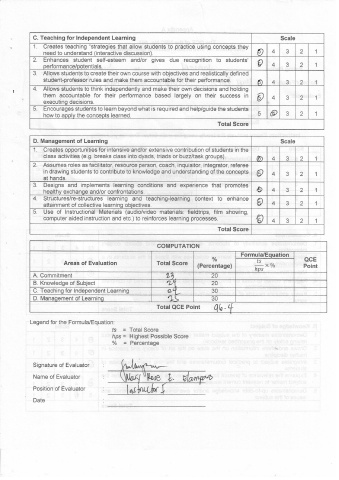 C. Teaching for Independent Learning Scale
1. Creates teaching strategies that allow students to practice using concepts they need to understand (interactive discussion). 5 4 3 2 1
2. Enhances student self-esteem and/or gives due recognition to students' performance/potentials. 5 4 3 2 1
3. Allows students to create their own course with objectives and realistically defined student-professor rules and make them accountable for their performance. 5 4 3 2 1
4. Allows students to think independently and make their own decisions and holding them accountable for their performance based largely on their success in executing decisions. 5 4 3 2 1
5. Encourages students to learn beyond what is required and help/guide the students how to apply the concepts learned. 5 4 3 2 1
Total Score
D. Management of Learning Scale
1. Creates opportunities for intensive and/or extensive contribution of students in the class activities (e.g. breaks class into dyads, triads or buzz/task groups). 5 4 3 2 1
2. Assumes roles as facilitator, resource person, coach, inquisitor, integrator, referee in drawing students to contribute to knowledge and understanding of the concepts at hands. 5 4 3 2 1
3. Designs and implements learning conditions and experience that promotes healthy exchange and/or confrontations. 5 4 3 2 1
4. Structures/re-structures learning and teaching-learning context to enhance attainment of collective learning objectives. 5 4 3 2 1
5. Use of Instructional Materials (audio/video materials: fieldtrips, film showing, computer aided instruction and etc.) to reinforces learning processes. 5 4 3 2 1
Total Score
COMPUTATION
Areas of Evaluation Total Score % (Percentage) Formula/Equation ts/hps × % QCE Point
A. Commitment 23 20
B. Knowledge of Subject 24 20
C. Teaching for Independent Learning 24 30
D. Management of Learning 25 30
Total QCE Point 96.4
Legend for the Formula/Equation:
ts = Total Score
hps = Highest Possible Score
% = Percentage
Signature of Evaluator
Name of Evaluator : Mary Rose E.
Position of Evaluator : Instructor I
Date :